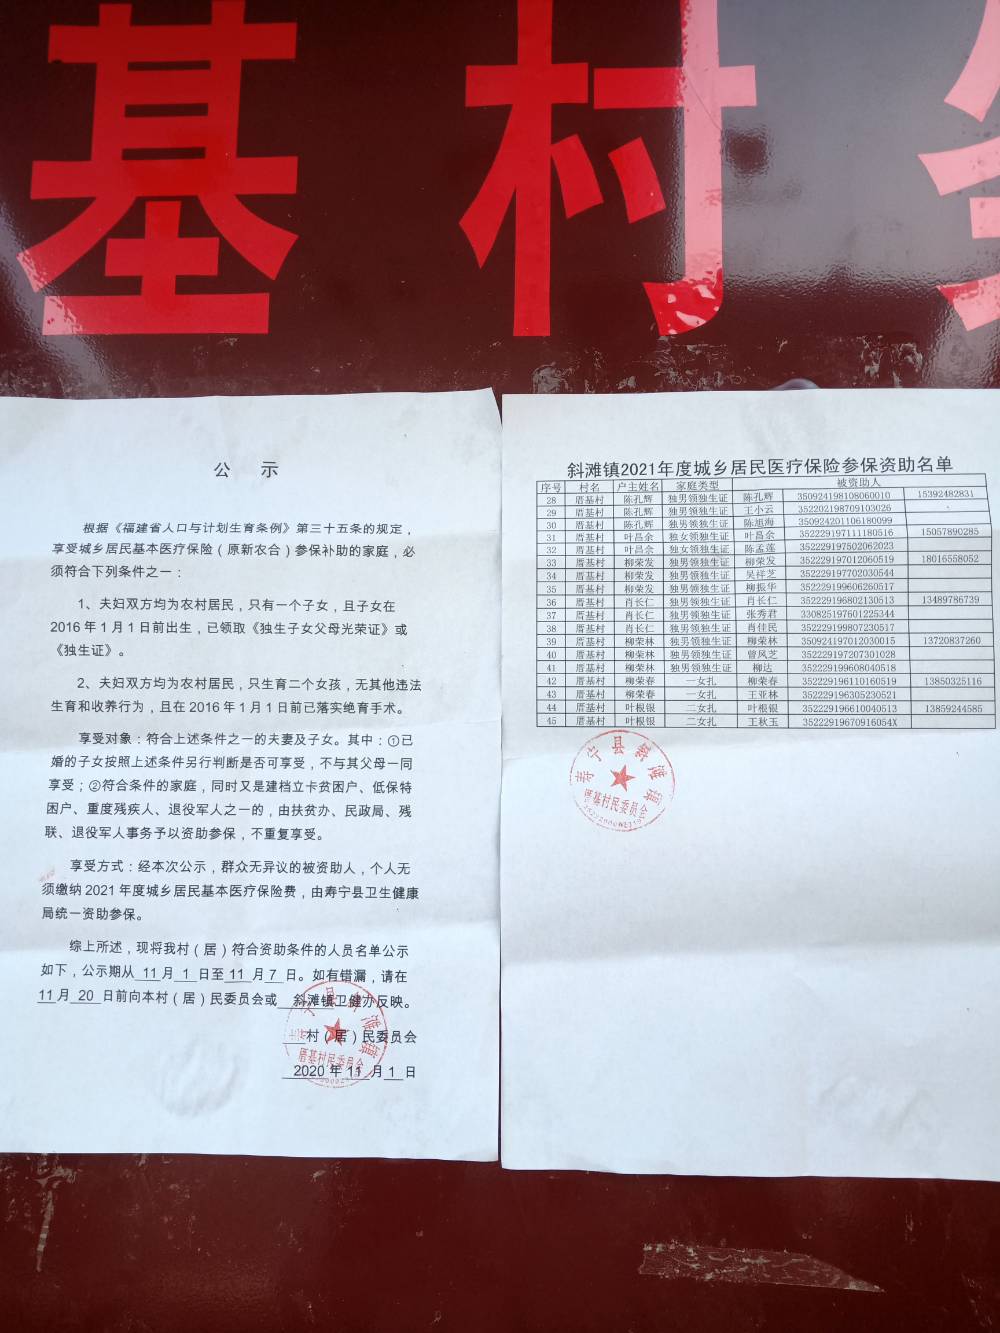 基 村
公 示
根据《福建省人口与计划生育条例》第三十五条的规定，
享受城乡居民基本医疗保险（原新农合）参保补助的家庭，必
须符合下列条件之一：
1、夫妇双方均为农村居民，只有一个子女，且子女在
2016年1月1日前出生，已领取《独生子女父母光荣证》或
《独生证》。
2、夫妇双方均为农村居民，只生育二个女孩，无其他违法
生育和收养行为，且在2016年1月1日前已落实绝育手术。
享受对象：符合上述条件之一的夫妻及子女。其中：①已
婚的子女按照上述条件另行判断是否可享受，不与其父母一同
享受；②符合条件的家庭，同时又是建档立卡贫困户、低保特
困户、重度残疾人、退役军人之一的，由扶贫办、民政局、残
联、退役军人事务予以资助参保，不重复享受。
享受方式：经本次公示，群众无异议的被资助人，个人无
须缴纳2021年度城乡居民基本医疗保险费，由寿宁县卫生健康
局统一资助参保。
综上所述，现将我村（居）符合资助条件的人员名单公示
如下，公示期从 11 月 1 日至 11 月 7 日。如有错漏，请在
11 月 20 日前向本村（居）民委员会或 斜滩镇卫健办反映。
村（居）民委员会
2020 年 11 月 1 日
厝基村民委员会
斜滩镇2021年度城乡居民医疗保险参保资助名单
序号 村名 户主姓名 家庭类型 被资助人
28 厝基村 陈孔辉 独男领独生证 陈孔辉 350924198108060010 15392482831
29 厝基村 陈孔辉 独男领独生证 王小云 352202198709103026
30 厝基村 陈孔辉 独男领独生证 陈旭海 350924201106180099
31 厝基村 叶昌余 独女领独生证 叶昌余 352229197111180516 15057890285
32 厝基村 叶昌余 独女领独生证 陈孟莲 352229197502062023
33 厝基村 柳荣发 独男领独生证 柳荣发 352229197012060519 18016558052
34 厝基村 柳荣发 独男领独生证 吴祥芝 352229197702030544
35 厝基村 柳荣发 独男领独生证 柳振华 352229199606260517
36 厝基村 肖长仁 独男领独生证 肖长仁 352229196802130513 13489786739
37 厝基村 肖长仁 独男领独生证 张秀君 330825197601225344
38 厝基村 肖长仁 独男领独生证 肖佳民 352229199807230517
39 厝基村 柳荣林 独男领独生证 柳荣林 350924197012030015 13720837260
40 厝基村 柳荣林 独男领独生证 曾凤芝 352229197207301028
41 厝基村 柳荣林 独男领独生证 柳达 352229199608040518
42 厝基村 柳荣春 一女扎 柳荣春 352229196110160519 13850325116
43 厝基村 柳荣春 二女扎 王亚林 352229196305230521
44 厝基村 叶根银 二女扎 叶根银 352229196610040513 13859244585
45 厝基村 叶根银 二女扎 王秋玉 35222919670916054X
寿宁县斜滩镇
厝基村民委员会